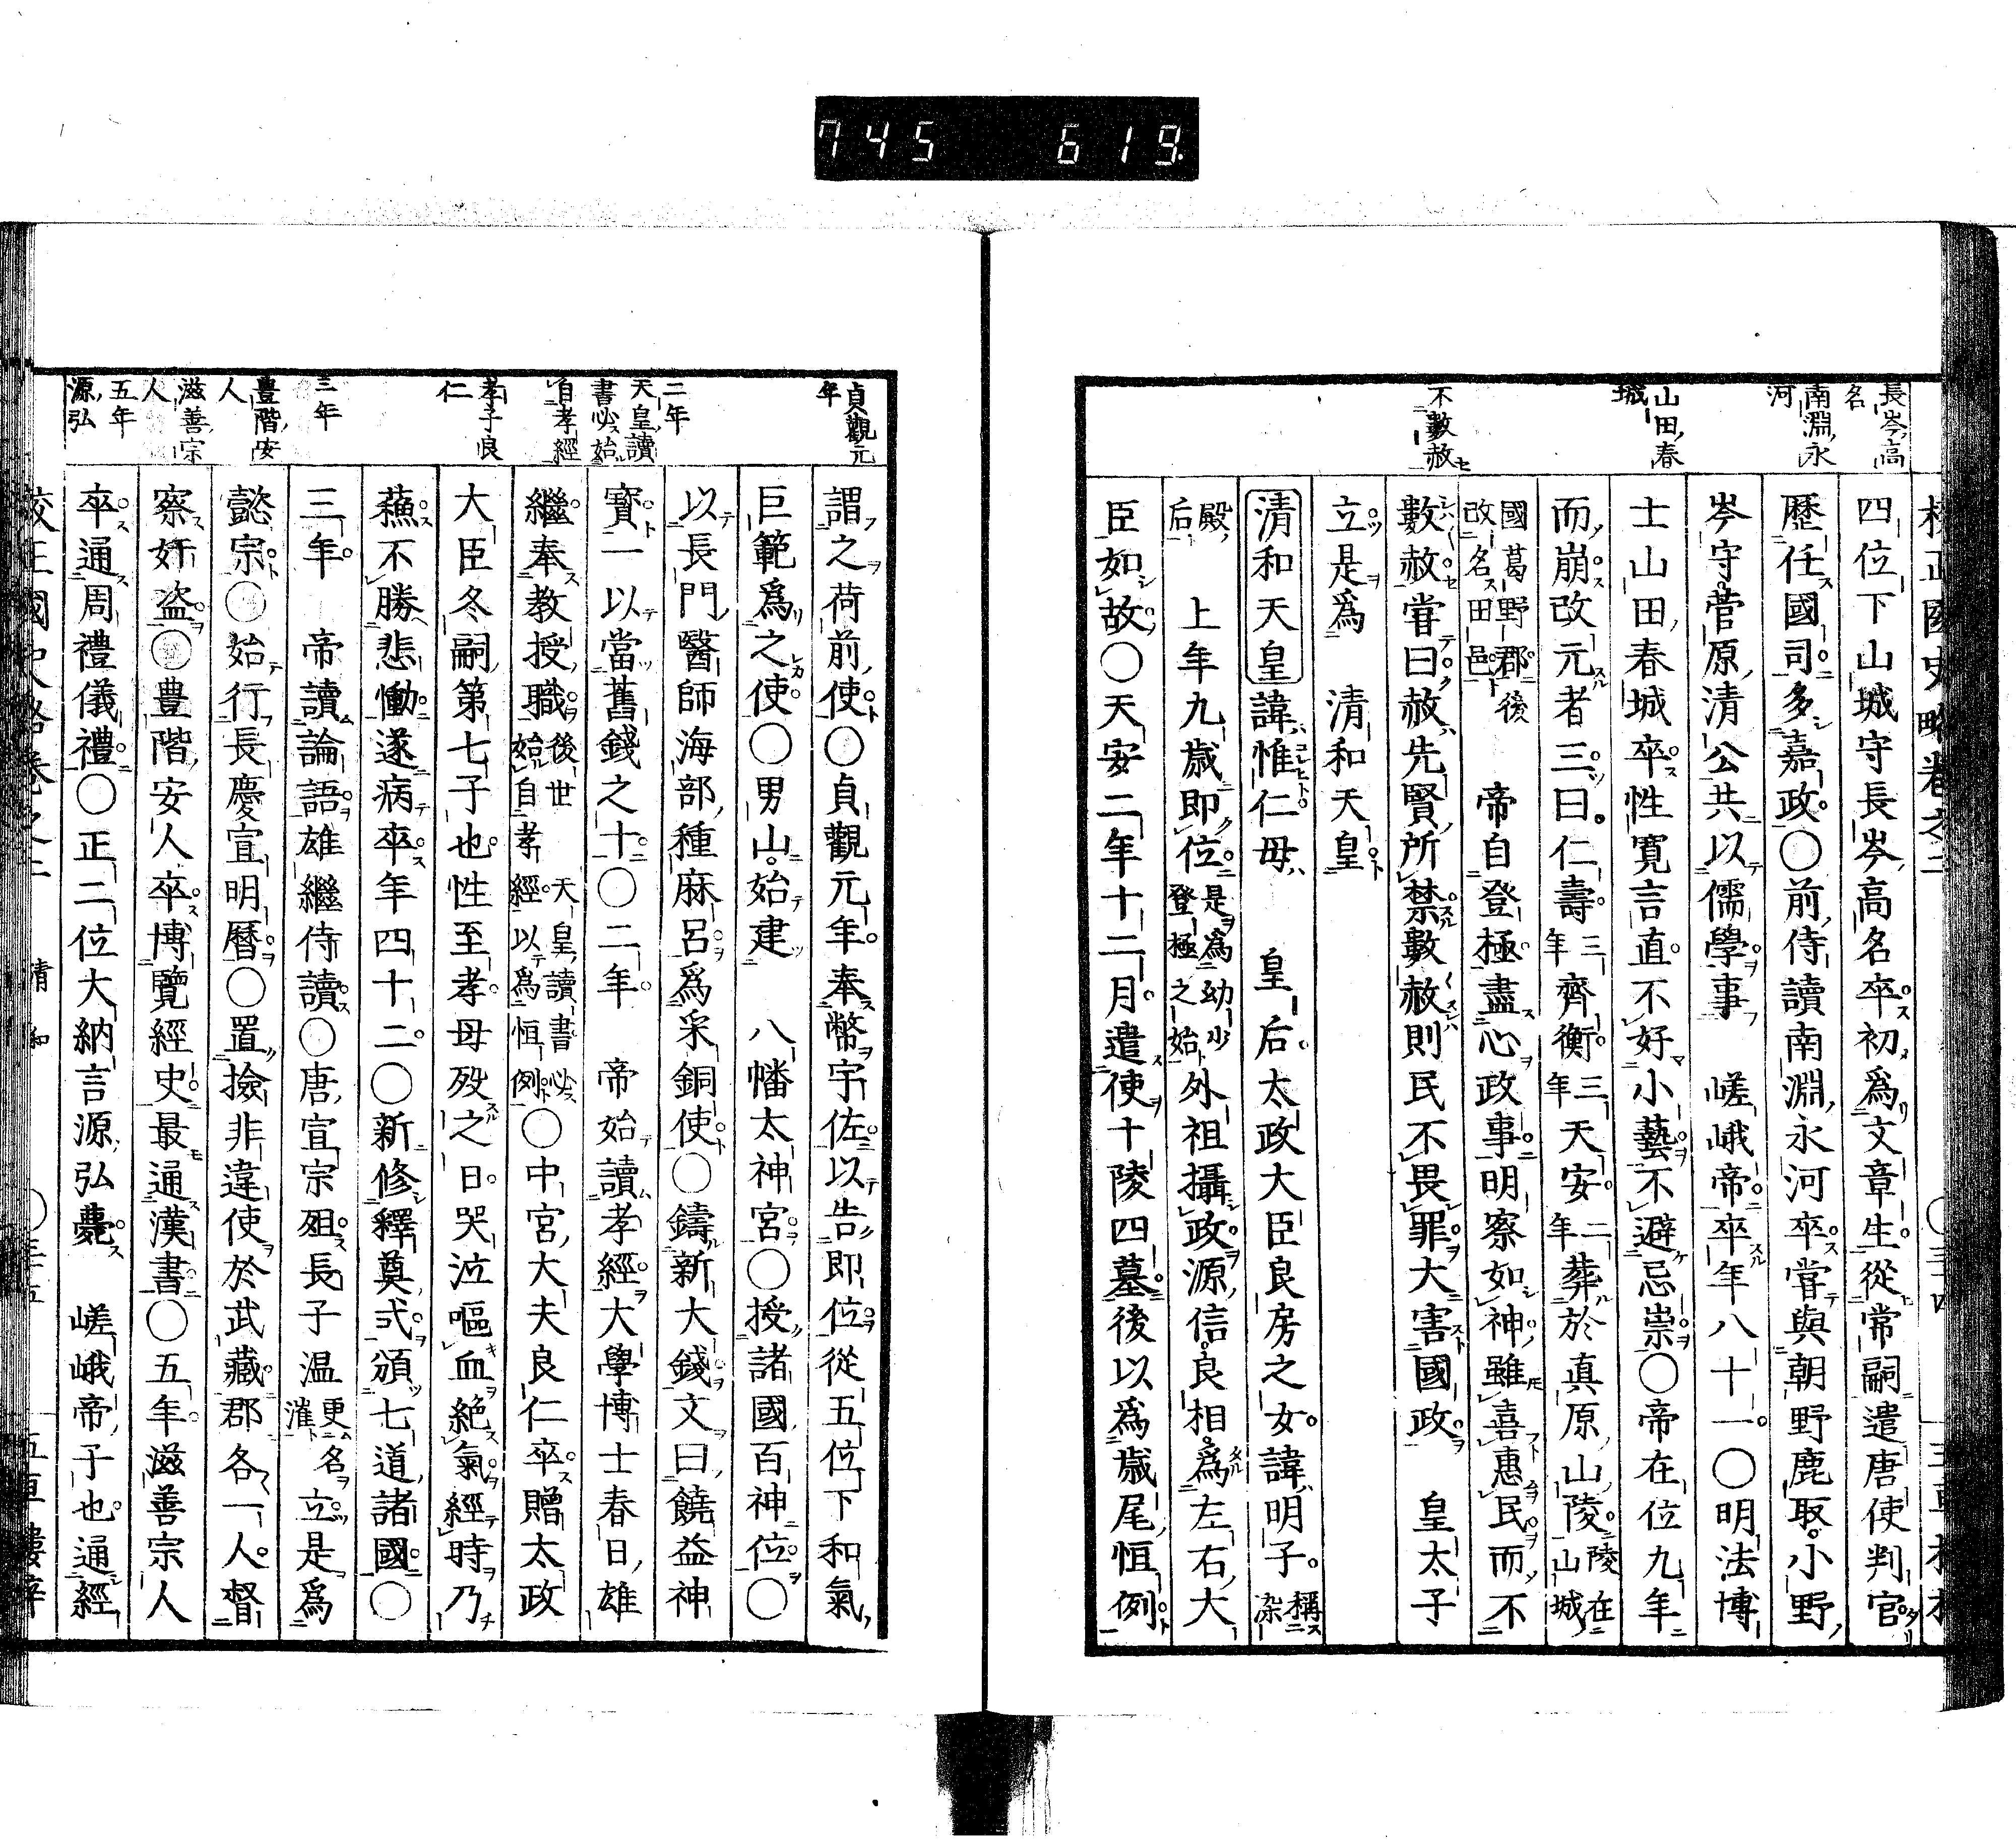 745 619
長岑高
名
南淵永
河
山田春
城
不數赦
四位下山城守長岑高名卒初爲文章生從常嗣遣唐使判官
歷任國司多嘉政○前侍讀南淵永河卒嘗與朝野鹿取小野
岑守菅原清公共以儒學事　嵯峨帝卒年八十一○明法博
士山田春城卒性寬言直不好小藝不避忌崇○帝在位九年
而崩改元者三曰仁壽三年齊衡三年天安二年葬於真原山陵陵在山城
國葛野郡後改名田邑　帝自登極盡心政事明察如神雖喜惠民而不
數赦嘗曰赦先賢所禁數赦則民不畏罪大害國政　皇太子
立是爲　清和天皇
清和天皇諱惟仁母　皇后太政大臣良房之女諱明子稱染
殿后　上年九歲即位是爲幼少登極之始外祖攝政源信良相爲左右大
臣如故○天安二年十二月遣使十陵四墓後以爲歲尾恒例
貞觀元
年
二年
天皇讀
書必始
自孝經
孝子良
仁
三年
豊階安
人
滋善宗
人
五年
源弘
謂之荷前使○貞觀元年奉幣宇佐以告即位從五位下和氣
巨範爲之使○男山始建　八幡太神宮○授諸國百神位○
以長門醫師海部種麻呂爲采銅使○鑄新大錢文曰饒益神
寳一以當舊錢之十○二年　帝始讀孝經大學博士春日雄
繼奉教授職後世始自孝經天皇讀書必以爲恒例○中宮大夫良仁卒贈太政
大臣冬嗣第七子也性至孝母歿之日哭泣嘔血絶氣經時乃
蘓不勝悲慟遂病卒年四十二○新修釋奠式頒七道諸國○
三年　帝讀論語雄繼侍讀○唐宣宗殂長子温更名漼立是爲
懿宗○始行長慶宣明曆○置撿非違使於武藏郡各一人督
察奸盜○豊階安人卒博覽經史最通漢書○五年滋善宗人
卒通周禮儀禮○正二位大納言源弘薨　嵯峨帝子也通經